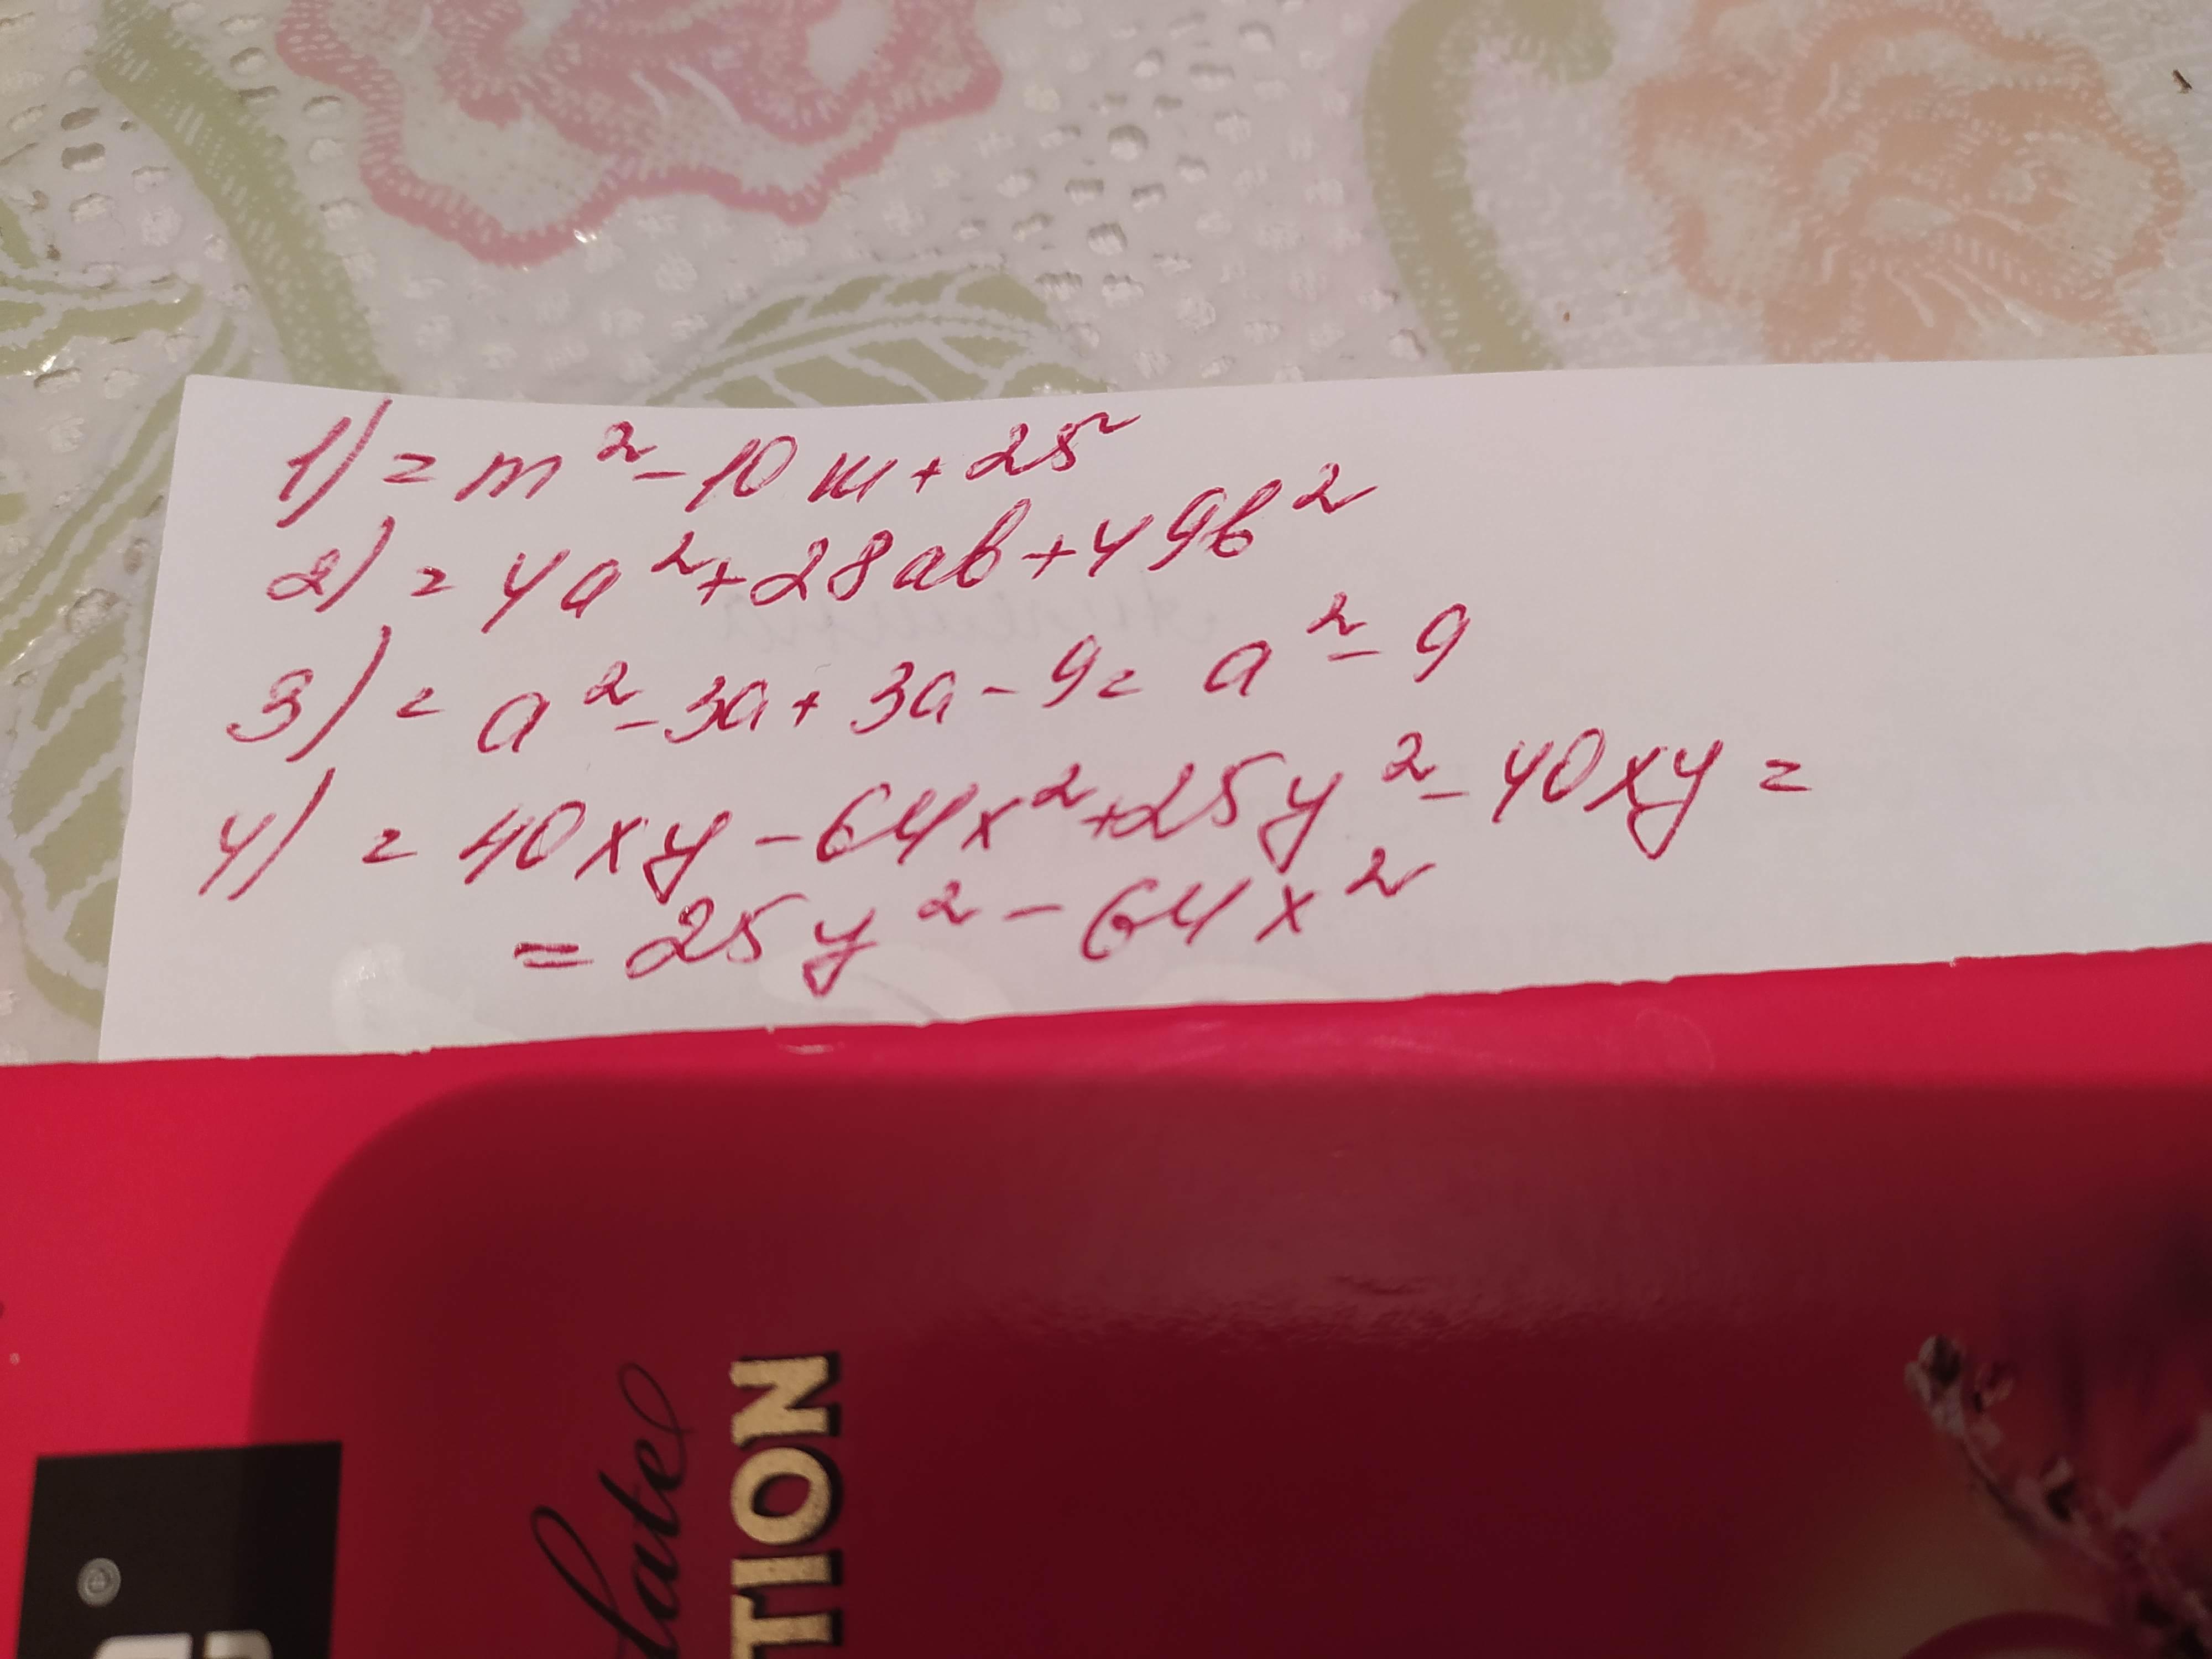 1) = m² - 10m + 25
2) = 4a² + 28ab + 49b²
3) = a² - 3a + 3a - 9 = a² - 9
4) = 40xy - 64x² + 25y² - 40xy =
= 25y² - 64x²
late
TION